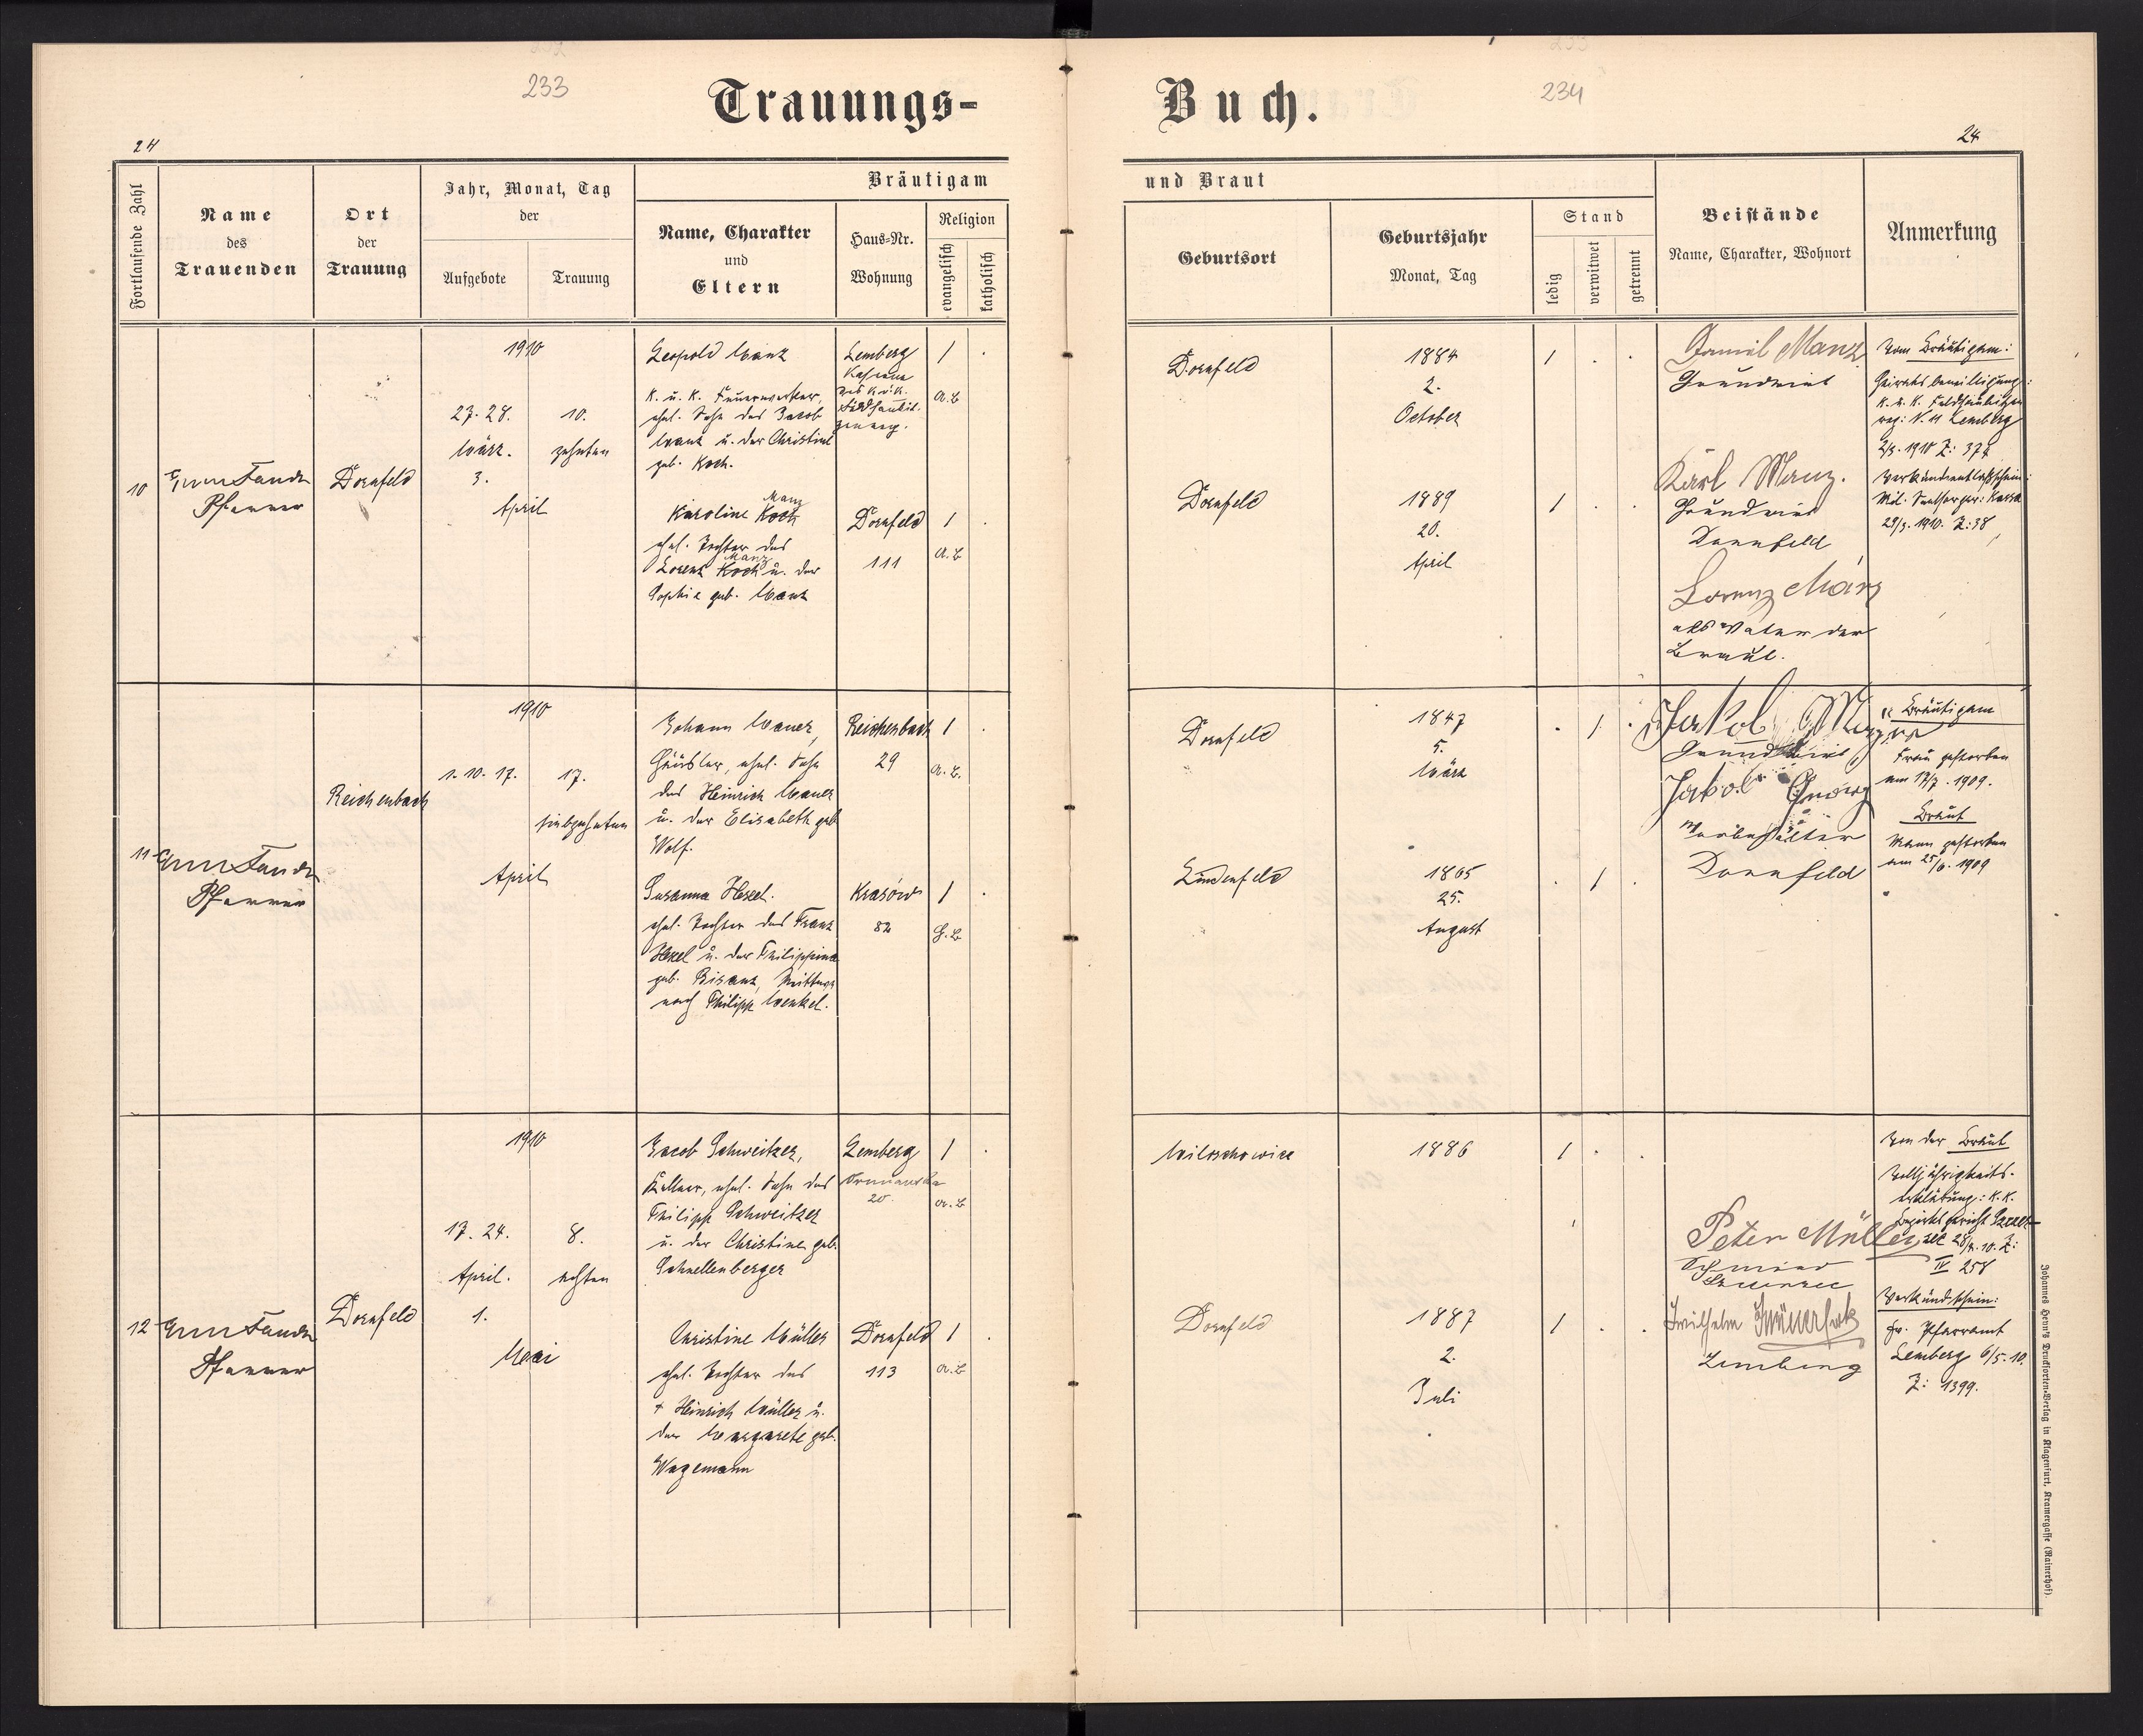 233
Trauungs-
24
Fortlaufende Zahl
Name
des
Trauenden
Ort
der
Trauung
Jahr, Monat, Tag
der
Aufgebote
Trauung
Bräutigam
Name, Charakter
und
Eltern
Haus-Nr.
Wohnung
Religion
evangelisch
katholisch
10
Pfarrer
Dornfeld
1910
27. 28.
10.
März.
zehnten
3.
April
Leopold Manz
k. u. k. Feuerwerker,
ehel. Sohn des Jacob
Manz u. der Christine
geb. Koch.
Lemberg
1
.
A.B
Karoline Koch
Manz
ehel. Tochter des
Manz
Lorenz Koch u. der
Sophie geb. Manz
Dornfeld
111
1
.
A.B
11
Pfarrer
Reichenbach
1910
1. 10. 17.
17.
siebzehnten
April
Johann Mauer,
Häusler, ehel. Sohn
des Heinrich Mauer
u. der Elisabeth geb
Wolf.
Reichenbach
29
1
.
A.B.
Susanna Hexel.
ehel. Tochter des Franz
Hexel u. der Philippina
geb. Bisanz, Wittwe
nach Philipp Wenkel.
Krasów
82
1
.
H.B
12
Pfarrer
Dornfeld
1910
17. 24.
8.
April.
achten
1.
Mai
Jacob Schweitzer,
Kellner, ehel. Sohn des
Philipp Schweitzer
u. der Christine geb.
Schnellenberger
Lemberg
20.
1
.
A.B
Christine Müller
ehel. Tochter des
+ Heinrich Müller u.
der Margarete geb.
Wagemann
Dornfeld
113
1
.
A.B
Buch.
234
24
und Braut
Geburtsort
Geburtsjahr
Monat, Tag
Stand
ledig
verwitwet
getrennt
Beistände
Name, Charakter, Wohnort
Anmerkung
Dornfeld
1884
2.
October
1
.
.
Daniel Manz
Grundwirt
Vom Bräutigam:
Heiratsbewilligung:
Lemberg
Dornfeld
1889
20.
April
1
.
.
Karl Manz.
Grundwirt
Dornfeld
29/3. 1910. Z: 38
Lorenz Manz
als Vater der
Braut.
Dornfeld
1847
5.
März
.
1
.
Jakob
Grundwirt
Bräutigam
Frau gestorben
1909.
Lindenfeld
1865
25.
August
.
1
.
Jakob Georg
Dornfeld
Braut
Mann gestorben
am 25/6. 1909
Miloschowice
1886
1
.
.
Peter Müller
Schmied
Von der Braut
Volljährigkeits-
erklärung: k.k.
Bezirksgericht
IV 258
Dornfeld
1887
2.
Juli
1
.
.
Wilhelm
Lemberg
Verkündschein:
ev. Pfarramt
Lemberg 6/5. 10.
Z: 1399.
Johannes Heyn's Drucksorten-Verlag in Klagenfurt, Kramergasse (Rainerhof).